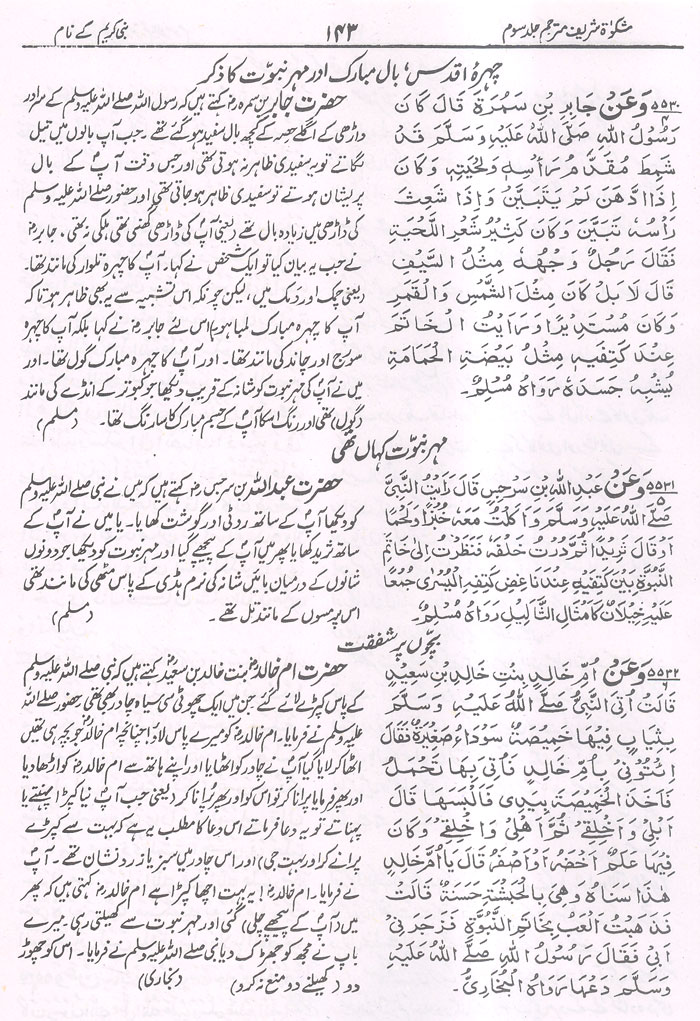 مشکوٰۃ شریف مترجم جلد سوم
۱۴۳
نبی کریم کے نام
چہرۂ اقدس، بال مبارک اور مہر نبوّت کا ذکر
۵۵۳۰ وَعَنْ جَابِرِ بْنِ سَمُرَةَ قَالَ كَانَ
رَسُوْلُ اللهِ صَلَّى اللهُ عَلَيْهِ وَسَلَّمَ قَدْ
شَمِطَ مُقَدَّمُ رَأْسِهٖ وَلِحْيَتِهٖ وَكَانَ
اِذَا ادَّهَنَ لَمْ يَتَبَيَّنْ وَاِذَا شَعِثَ
رَأْسُهٗ تَبَيَّنَ وَكَانَ كَثِيْرَ شَعْرِ اللِّحْيَةِ
فَقَالَ رَجُلٌ وَجْهُهٗ مِثْلُ السَّيْفِ
قَالَ لَا بَلْ كَانَ مِثْلَ الشَّمْسِ وَالْقَمَرِ
وَكَانَ مُسْتَدِيْرًا وَرَأَيْتُ الْخَاتَمَ
عِنْدَ كَتِفِهٖ مِثْلَ بَيْضَةِ الْحَمَامَةِ
يُشْبِهُ جَسَدَهٗ رَوَاهُ مُسْلِمٌ۔
حضرت جابر بن سمرہؓ کہتے ہیں کہ رسول اللہ صلے اللہ علیہ وسلم کے سر اور
داڑھی کے اگلے حصہ کے کچھ بال سفید ہو گئے تھے۔ جب آپ بالوں میں تیل
لگاتے تو یہ سفیدی ظاہر نہ ہوتی تھی اور جس وقت آپؐ کے بال
پریشان ہوتے تو سفیدی ظاہر ہو جاتی تھی اور حضور صلے اللہ علیہ وسلم
کی داڑھی میں زیادہ بال تھے (یعنی آپؐ کی داڑھی گھنی تھی ہلکی نہ تھی، جابرؓ
نے جب یہ بیان کیا تو ایک شخص نے کہا۔ آپؐ کا چہرہ تلوار کی مانند تھا۔
(یعنی چمک اور دمک میں، لیکن چونکہ اس تشبیہ سے یہ بھی ظاہر ہوتا کہ
آپ کا چہرہ مبارک لمبا ہو) اس لئے جابرؓ نے کہا بلکہ آپ کا چہرہ
سورج اور چاند کی مانند تھا۔ اور آپؐ کا چہرہ مبارک گول تھا۔ اور
میں نے آپؐ کی مہر نبوت کو شانہ کے قریب دیکھا جو کبوتر کے انڈے کی مانند
(گول) تھی اور رنگ اسکا آپؐ کے جسم مبارک کا سا رنگ تھا۔ (مسلم)
مہر نبوّت کہاں تھی
۵۵۳۱ وَعَنْ عَبْدِ اللهِ بْنِ سَرْجِسٍ قَالَ رَأَيْتُ النَّبِيَّ
صَلَّى اللهُ عَلَيْهِ وَسَلَّمَ وَاَكَلْتُ مَعَهٗ خُبْزًا وَّلَحْمًا
اَوْ قَالَ ثَرِيْدًا ثُمَّ دُرْتُ خَلْفَهٗ فَنَظَرْتُ اِلٰى خَاتَمِ
النُّبُوَّةِ بَيْنَ كَتِفَيْهِ عِنْدَ نَاغِضِ كَتِفِهِ الْيُسْرٰى جُمْعًا
عَلَيْهِ خِيْلَانٌ كَاَمْثَالِ الثَّاٰلِيْلِ رَوَاهُ مُسْلِمٌ۔
حضرت عبد اللہ بن سرجس کہتے ہیں کہ میں نے نبی صلے اللہ علیہ وسلم
کو دیکھا آپؐ کے ساتھ روٹی اور گوشت کھایا۔ یا میں نے آپؐ کے
ساتھ ثرید کھایا پھر میں آپؐ کے پیچھے گیا اور مہر نبوت کو دیکھا جو دونوں
شانوں کے درمیان بائیں شانہ کی نرم ہڈی کے پاس مٹھی کی مانند تھی
اس پر مسوں کے مانند تل تھے۔ (مسلم)
بچّوں پر شفقت
۵۵۳۲ وَعَنْ اُمِّ خَالِدٍ بِنْتِ خَالِدِ بْنِ سَعِيْدٍ
قَالَتْ اُتِيَ النَّبِيُّ صَلَّى اللهُ عَلَيْهِ وَسَلَّمَ
بِثِيَابٍ فِيْهَا خَمِيْصَةٌ سَوْدَاءُ صَغِيْرَةٌ فَقَالَ
اِئْتُوْنِيْ بِاُمِّ خَالِدٍ فَاُتِيَ بِهَا تُحْمَلُ
فَاَخَذَ الْخَمِيْصَةَ بِيَدِهٖ فَاَلْبَسَهَا قَالَ
اَبْلِيْ وَاَخْلِقِيْ ثُمَّ اَبْلِيْ وَاَخْلِقِيْ وَكَانَ
فِيْهَا عَلَمٌ اَخْضَرُ اَوْ اَصْفَرُ قَالَ يَا اُمَّ خَالِدٍ
هٰذَا سَنَاهْ وَهِيَ بِالْحَبْشَةِ حَسَنَةٌ قَالَتْ
فَذَهَبْتُ اَلْعَبُ بِخَاتَمِ النُّبُوَّةِ فَزَجَرَنِيْ
اَبِيْ فَقَالَ رَسُوْلُ اللهِ صَلَّى اللهُ عَلَيْهِ
وَسَلَّمَ دَعْهَا رَوَاهُ الْبُخَارِيُّ۔
حضرت ام خالدؓ بنت خالد بن سعیدؓ کہتے ہیں کہ نبی صلے اللہ علیہ وسلم
کے پاس کپڑے لائے گئے جن میں ایک چھوٹی سی سیاہ چادر بھی تھی حضور صلے اللہ
علیہ وسلم نے فرمایا۔ ام خالدؓ کو میرے پاس لاؤ، چنانچہ ام خالدؓ جو بچی ہی تھیں
اٹھا کر لایا گیا آپؐ نے چادر کو اٹھایا اور اپنے ہاتھ سے ام خالدؓ کو اڑھا دیا
اور پھر فرمایا پرانا کر تو اس کو اور پھر پرانا کر (یعنی جب آپ نیا کپڑا پہنتے یا
پہناتے تو یہ دعا فرماتے اس دعا کا مطلب یہ ہے کہ بہت سے کپڑے
پرانے کر اور بہت جی) اور اس چادر میں سبز یا زرد نشان تھے۔ آپؐ
نے فرمایا۔ ام خالدؓ! یہ بہت اچھا کپڑا ہے ام خالدؓ کہتی ہیں کہ پھر
میں (آپؐ کے پیچھے چلی) گئی اور مہر نبوت سے کھیلتی رہی۔ میرے
باپ نے مجھ کو جھڑک دیا نبی صلے اللہ علیہ وسلم نے فرمایا۔ اس کو چھوڑ
دو (کھیلنے دو منع نہ کرو) (بخاری)